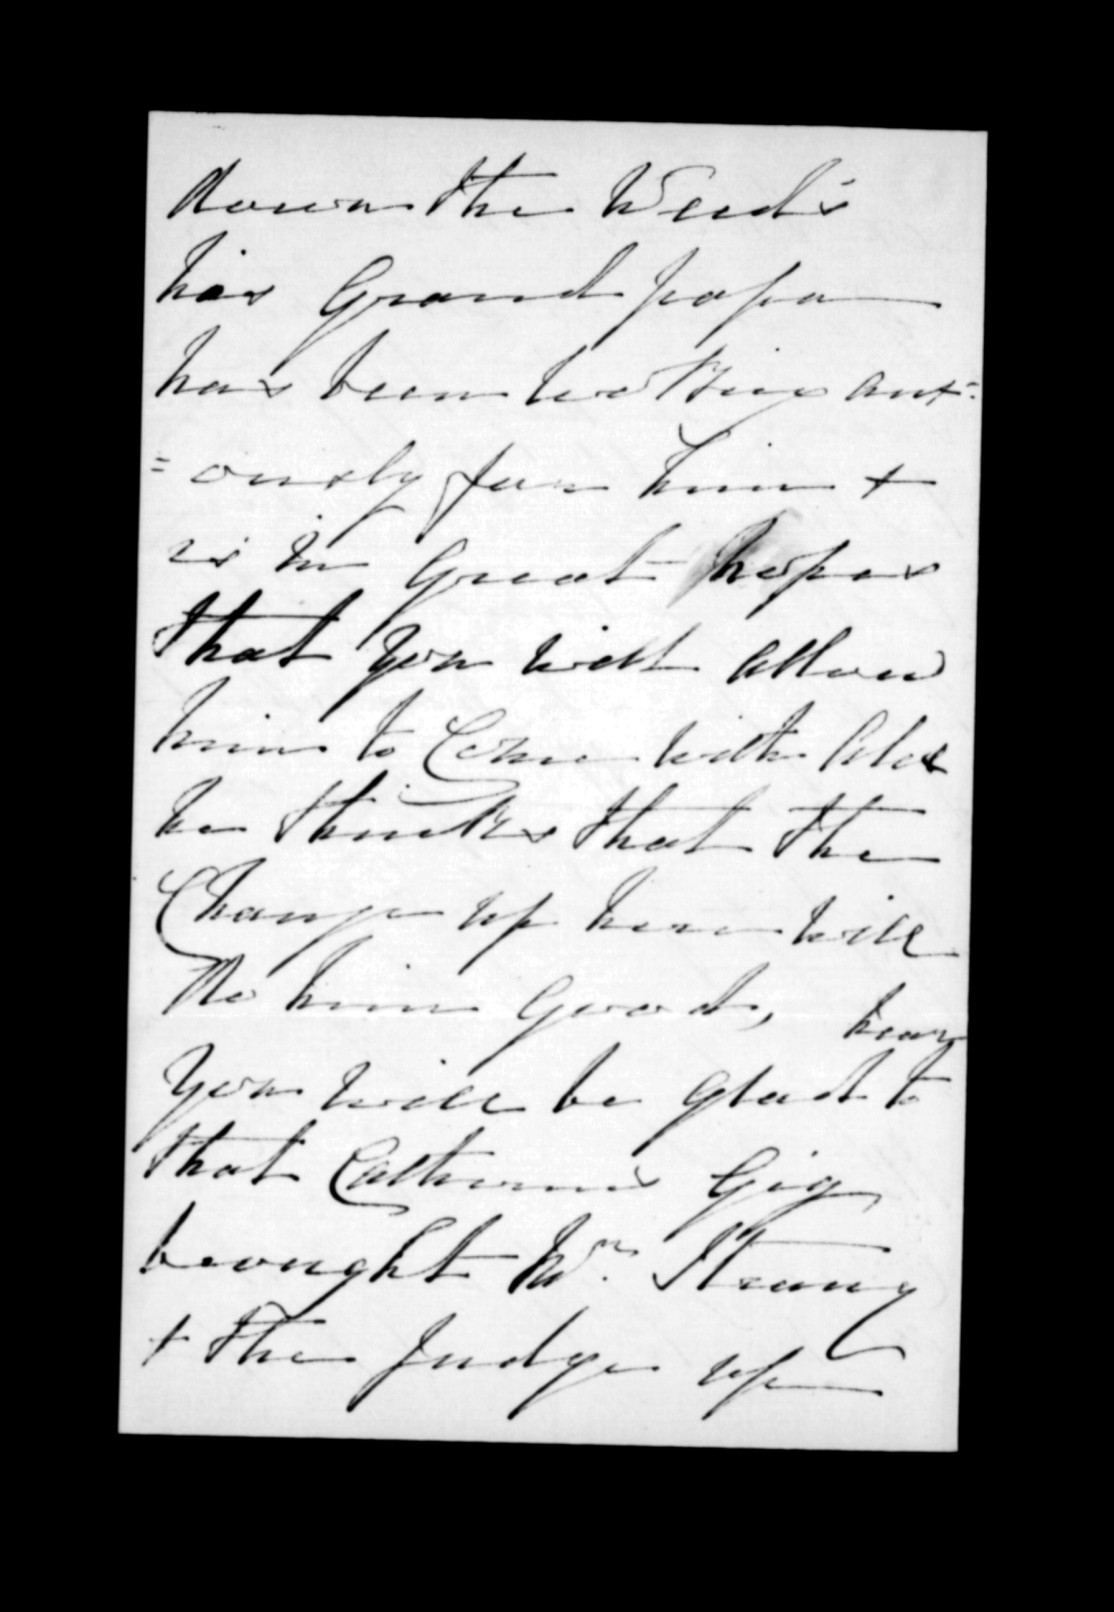 down the Weeds
his Grandpapa
has been looking anx=
=ously for him +
is in Great hopes
that you will allow
him to Come with Alex
he thinks that the
Change up here will
do him Good,
you will be Glad to hear
that Catherines Gig
brought Mr. Strang
+ the Judge up